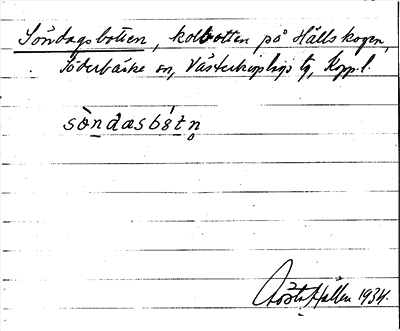 Söndagsbotten, kolbotten på Hällskogen,
Söderbärke sn, Västerbergslags tg, Kppl.
sòndasbótn̥
Gösta Hallén 1934.